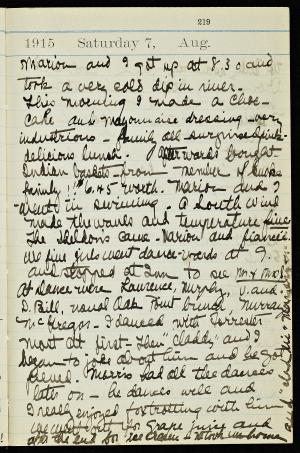 219
1915 Saturday 7, Aug.
Marion and I got up at 8.30 and
took a very cold dip in river.
This morning I made a choc-
cake and mayonnaise dressing very
industrious - family all surprised
delicious lunch. Afterwards bought
Indian baskets from member of
family!! 6.45 worth. Marion and I
went in swimming. A south wind
made the waves and temperature fine.
The Sheldons came - Marion and fiancé.
We five girls went dance-wards at 9.
and stopped at Inn to see Mr & Mrs
at dance were Lawrence, Murphy, V. and
D. Bill, usual Oak Point bunch, Murray
McGregor. I danced with Forrester
most at first - then "Claddy" and I
began to joke about him and he got
peeved. Morris had all the dances
later on - he dances well and
I really enjoyed foxtrotting with him
We went for grape juice and
at the end for ice cream